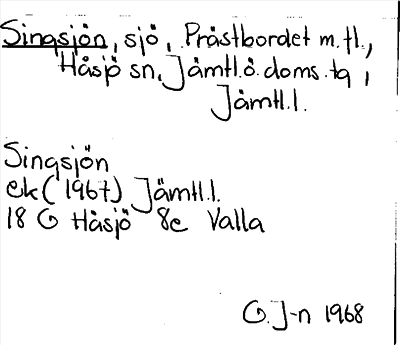 Singsjön, sjö, Prästbordet m.fl.,
Håsjö sn, Jämtl.ö.doms.tg,
Jämtl.l.
Singsjön
ek (1967) Jämtl.l.
18 G Håsjö 8e Valla
G. J-n 1968